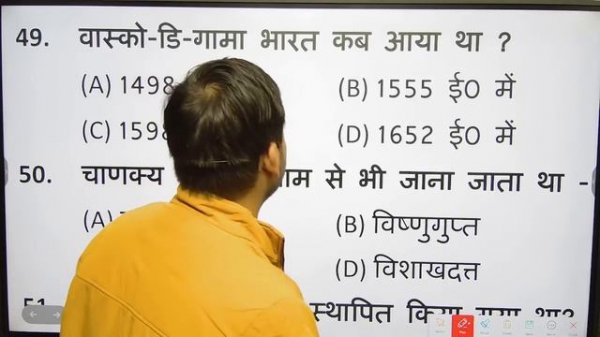 49. वास्को-डि-गामा भारत कब आया था ?
(A) 1498
(B) 1555 ई0 में
(C) 159
(D) 1652 ई0 में
50. चाणक्य से भी जाना जाता था -
(B) विष्णुगुप्त
(D) विशाखदत्त
स्थापित किया गया था?